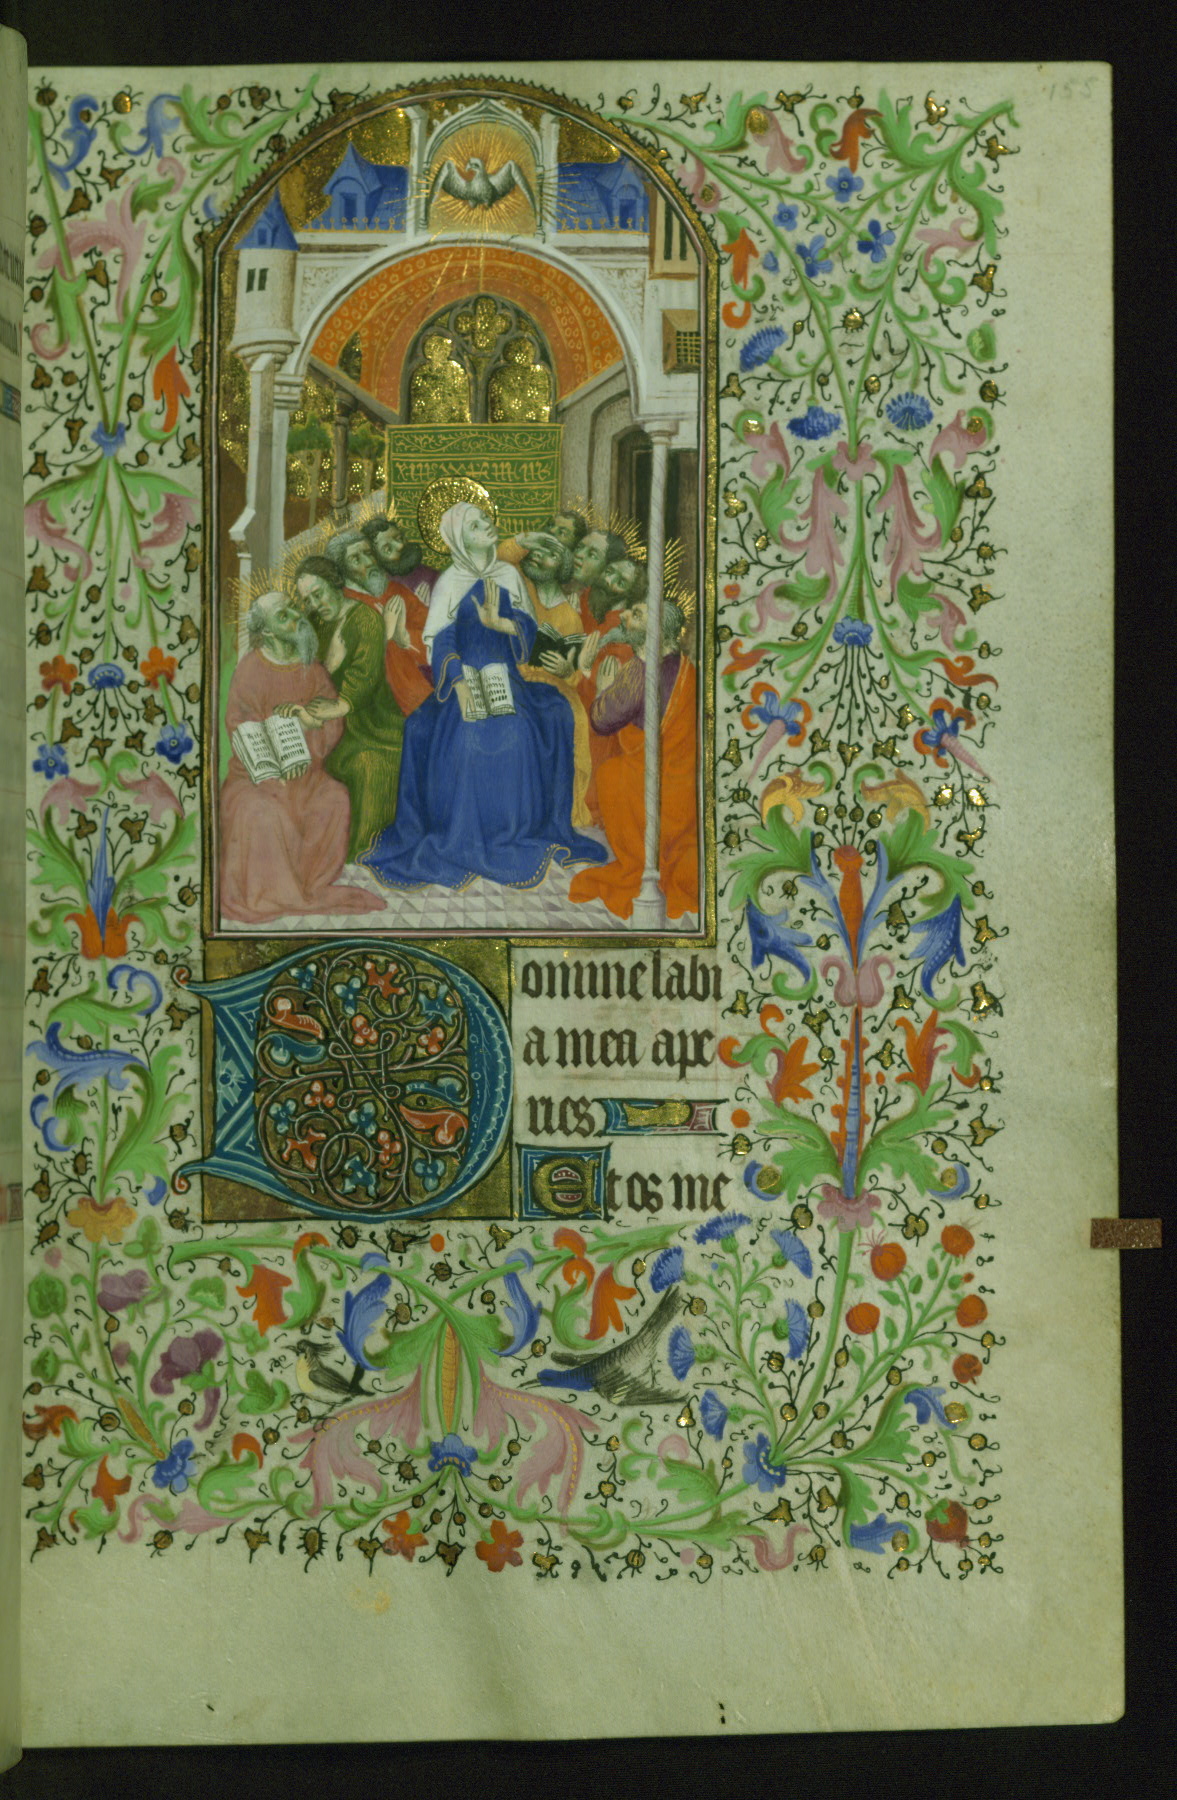 155
Domine labi
a mea ape
ries
Et os me